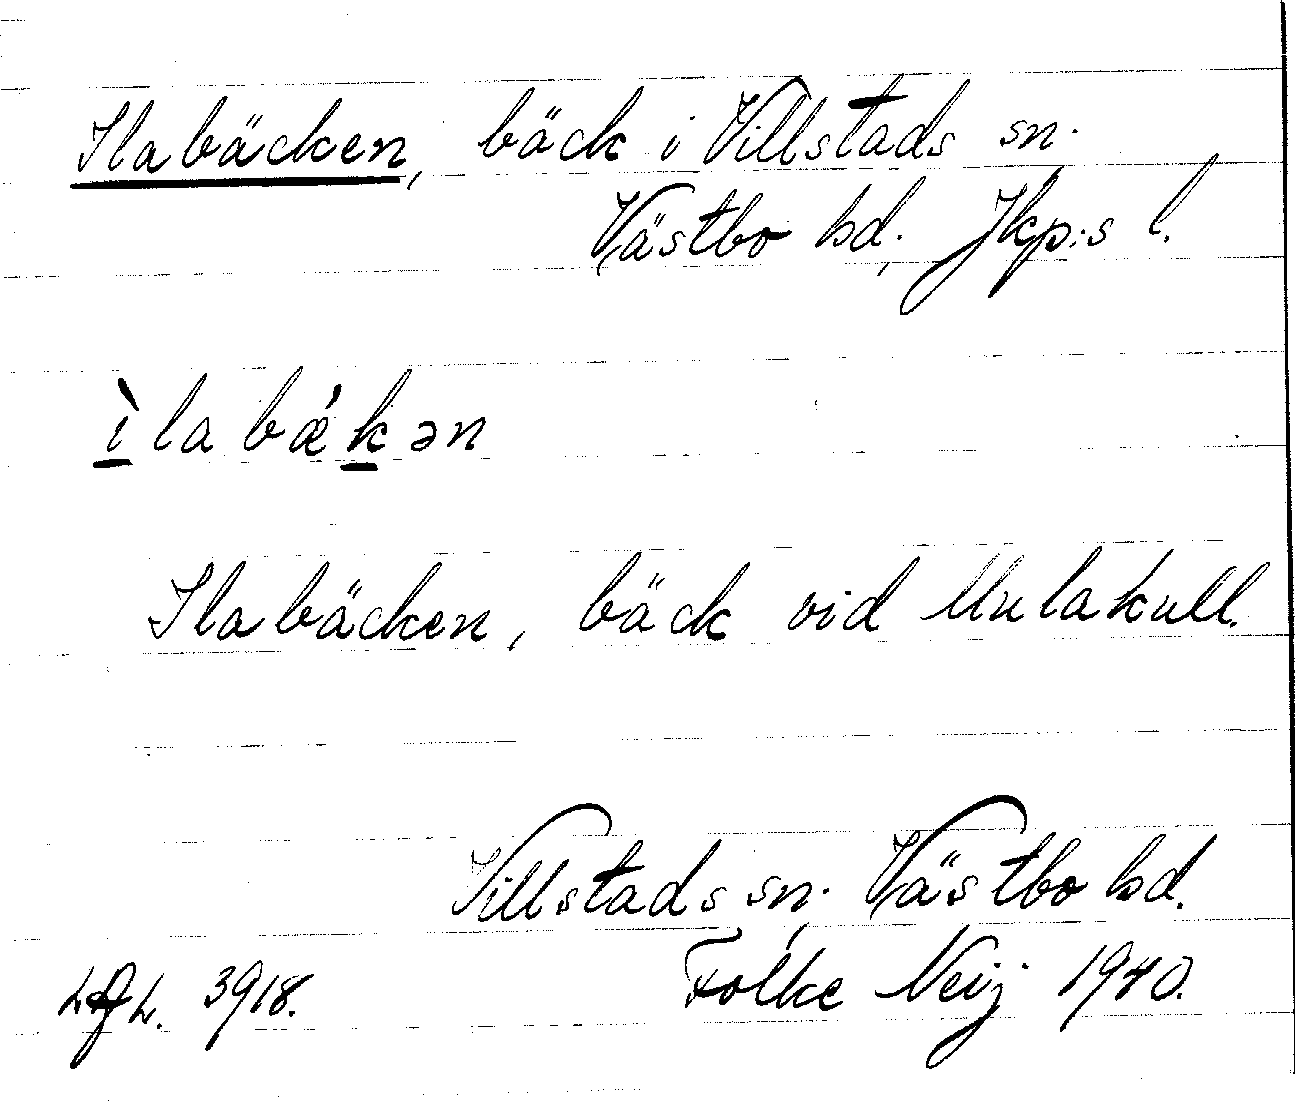 Ilabäcken, bäck i Villstads sn.
Västbo hd, Jkp:s l.
ìlabǽkən
Ilabäcken, bäck vid Mulakull.
Villstads sn, Västbo hd.
Folke Neij 1940.
3918.